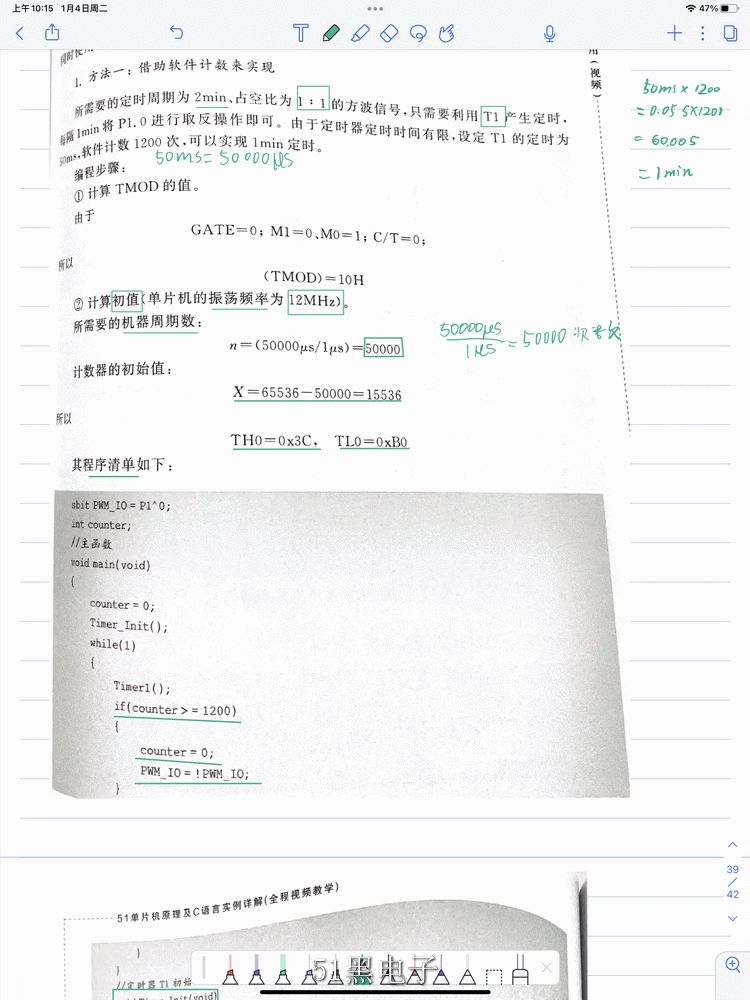 上午10:15 1月4日周二
47%
1. 方法一：借助软件计数来实现
用(视频)
所需要的定时周期为 2min、占空比为 1：1 的方波信号,只需要利用 T1 产生定时,
每隔 1min 将 P1.0 进行取反操作即可。由于定时器定时时间有限,设定 T1 的定时为
50ms,软件计数 1200 次,可以实现 1min 定时。
50ms=50000μs
50ms×1200
=0.05s×1201
=60.00s
=1min
编程步骤：
① 计算 TMOD 的值。
由于
GATE=0; M1=0、M0=1; C/T=0;
所以
(TMOD)=10H
② 计算初值(单片机的振荡频率为 12MHz)。
所需要的机器周期数：
n=(50000μs/1μs)=50000
50000μs
1μs
=50000次
计数器的初始值：
X=65536-50000=15536
所以
TH0=0x3C, TL0=0xB0
其程序清单如下：
sbit PWM_IO=P1^0;
int counter;
//主函数
void main(void)
{
counter=0;
Timer_Init();
while(1)
{
Timer1();
if(counter>=1200)
{
counter=0;
PWM_IO=!PWM_IO;
}
39
/
42
51单片机原理及C语言实例详解(全程视频教学)
}
}
//定时器T1初始
51黑电子
Init(void)